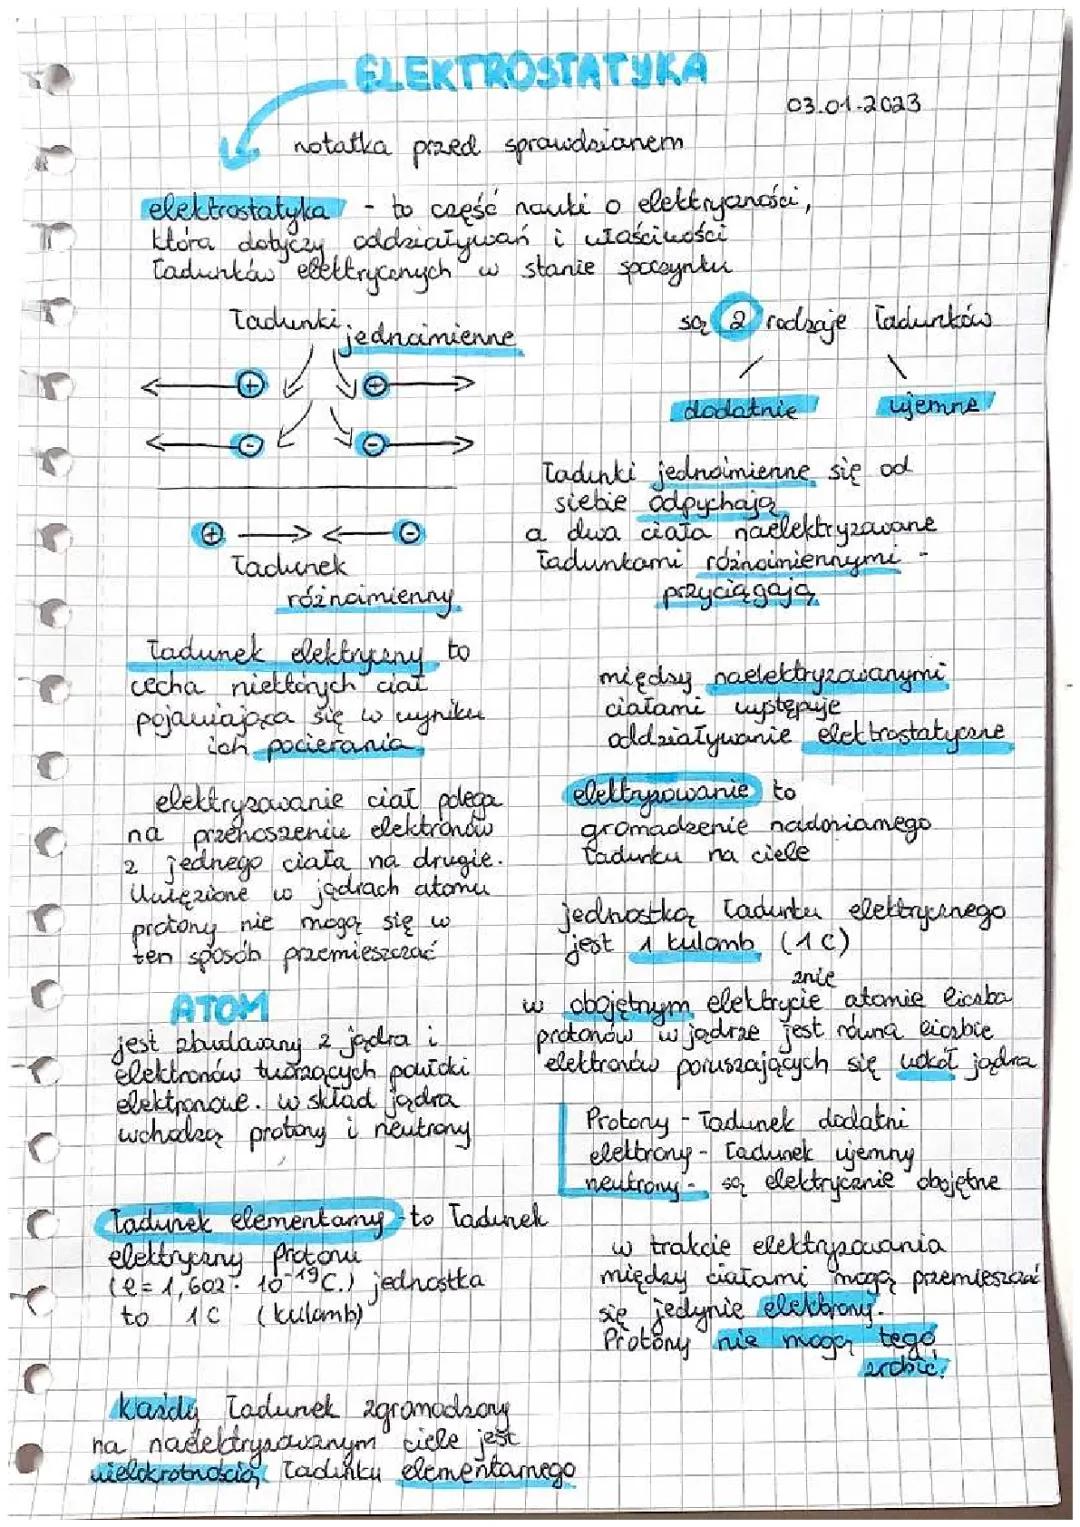 ELEKTROSTATYKA
03.01.2023
notatka przed sprawdzianem
elektrostatyka - to część nauki o elektryczności,
która dotyczy oddziaływań i właściwości
ładunków elektrycznych w stanie spoczynku
Ładunki
jednoimienne
+ +
- -
+ -
Ładunek
różnoimienny
są 2 rodzaje ładunków
dodatnie ujemne
Ładunki jednoimienne się od
siebie odpychają
a dwa ciała naelektryzowane
ładunkami różnoimiennymi -
przyciągają
Ładunek elektryczny to
cecha niektórych ciał
pojawiająca się w wyniku
ich pocierania
między naelektryzowanymi
ciałami występuje
oddziaływanie elektrostatyczne
elektryzowanie ciał polega
na przenoszeniu elektronów
z jednego ciała na drugie.
Uwięzione w jądrach atomu
protony nie mogą się w
ten sposób przemieszczać
elektryzowanie to
gromadzenie nadmiarnego
ładunku na ciele
jednostką ładunku elektrycznego
jest 1 kulomb (1C)
ATOM
jest zbudowany z jądra i
elektronów tworzących powłoki
elektronowe. w skład jądra
wchodzą protony i neutrony
znie
w obojętnym elektrycie atomie liczba
protonów w jądrze jest równa liczbie
elektronów poruszających się wokół jądra
Protony - ładunek dodatni
elektrony - ładunek ujemny
neutrony - są elektrycznie obojętne
Ładunek elementarny - to ładunek
elektryczny Protonu
(e = 1,602 · 10⁻¹⁹ C.) jednostka
to 1C (kulomb)
w trakcie elektryzowania
między ciałami mogą przemieszczać
się jedynie elektrony.
Protony nie mogą tego
zrobić!
Każdy ładunek zgromadzony
na naelektryzowanym ciele jest
wielokrotnością ładunku elementarnego